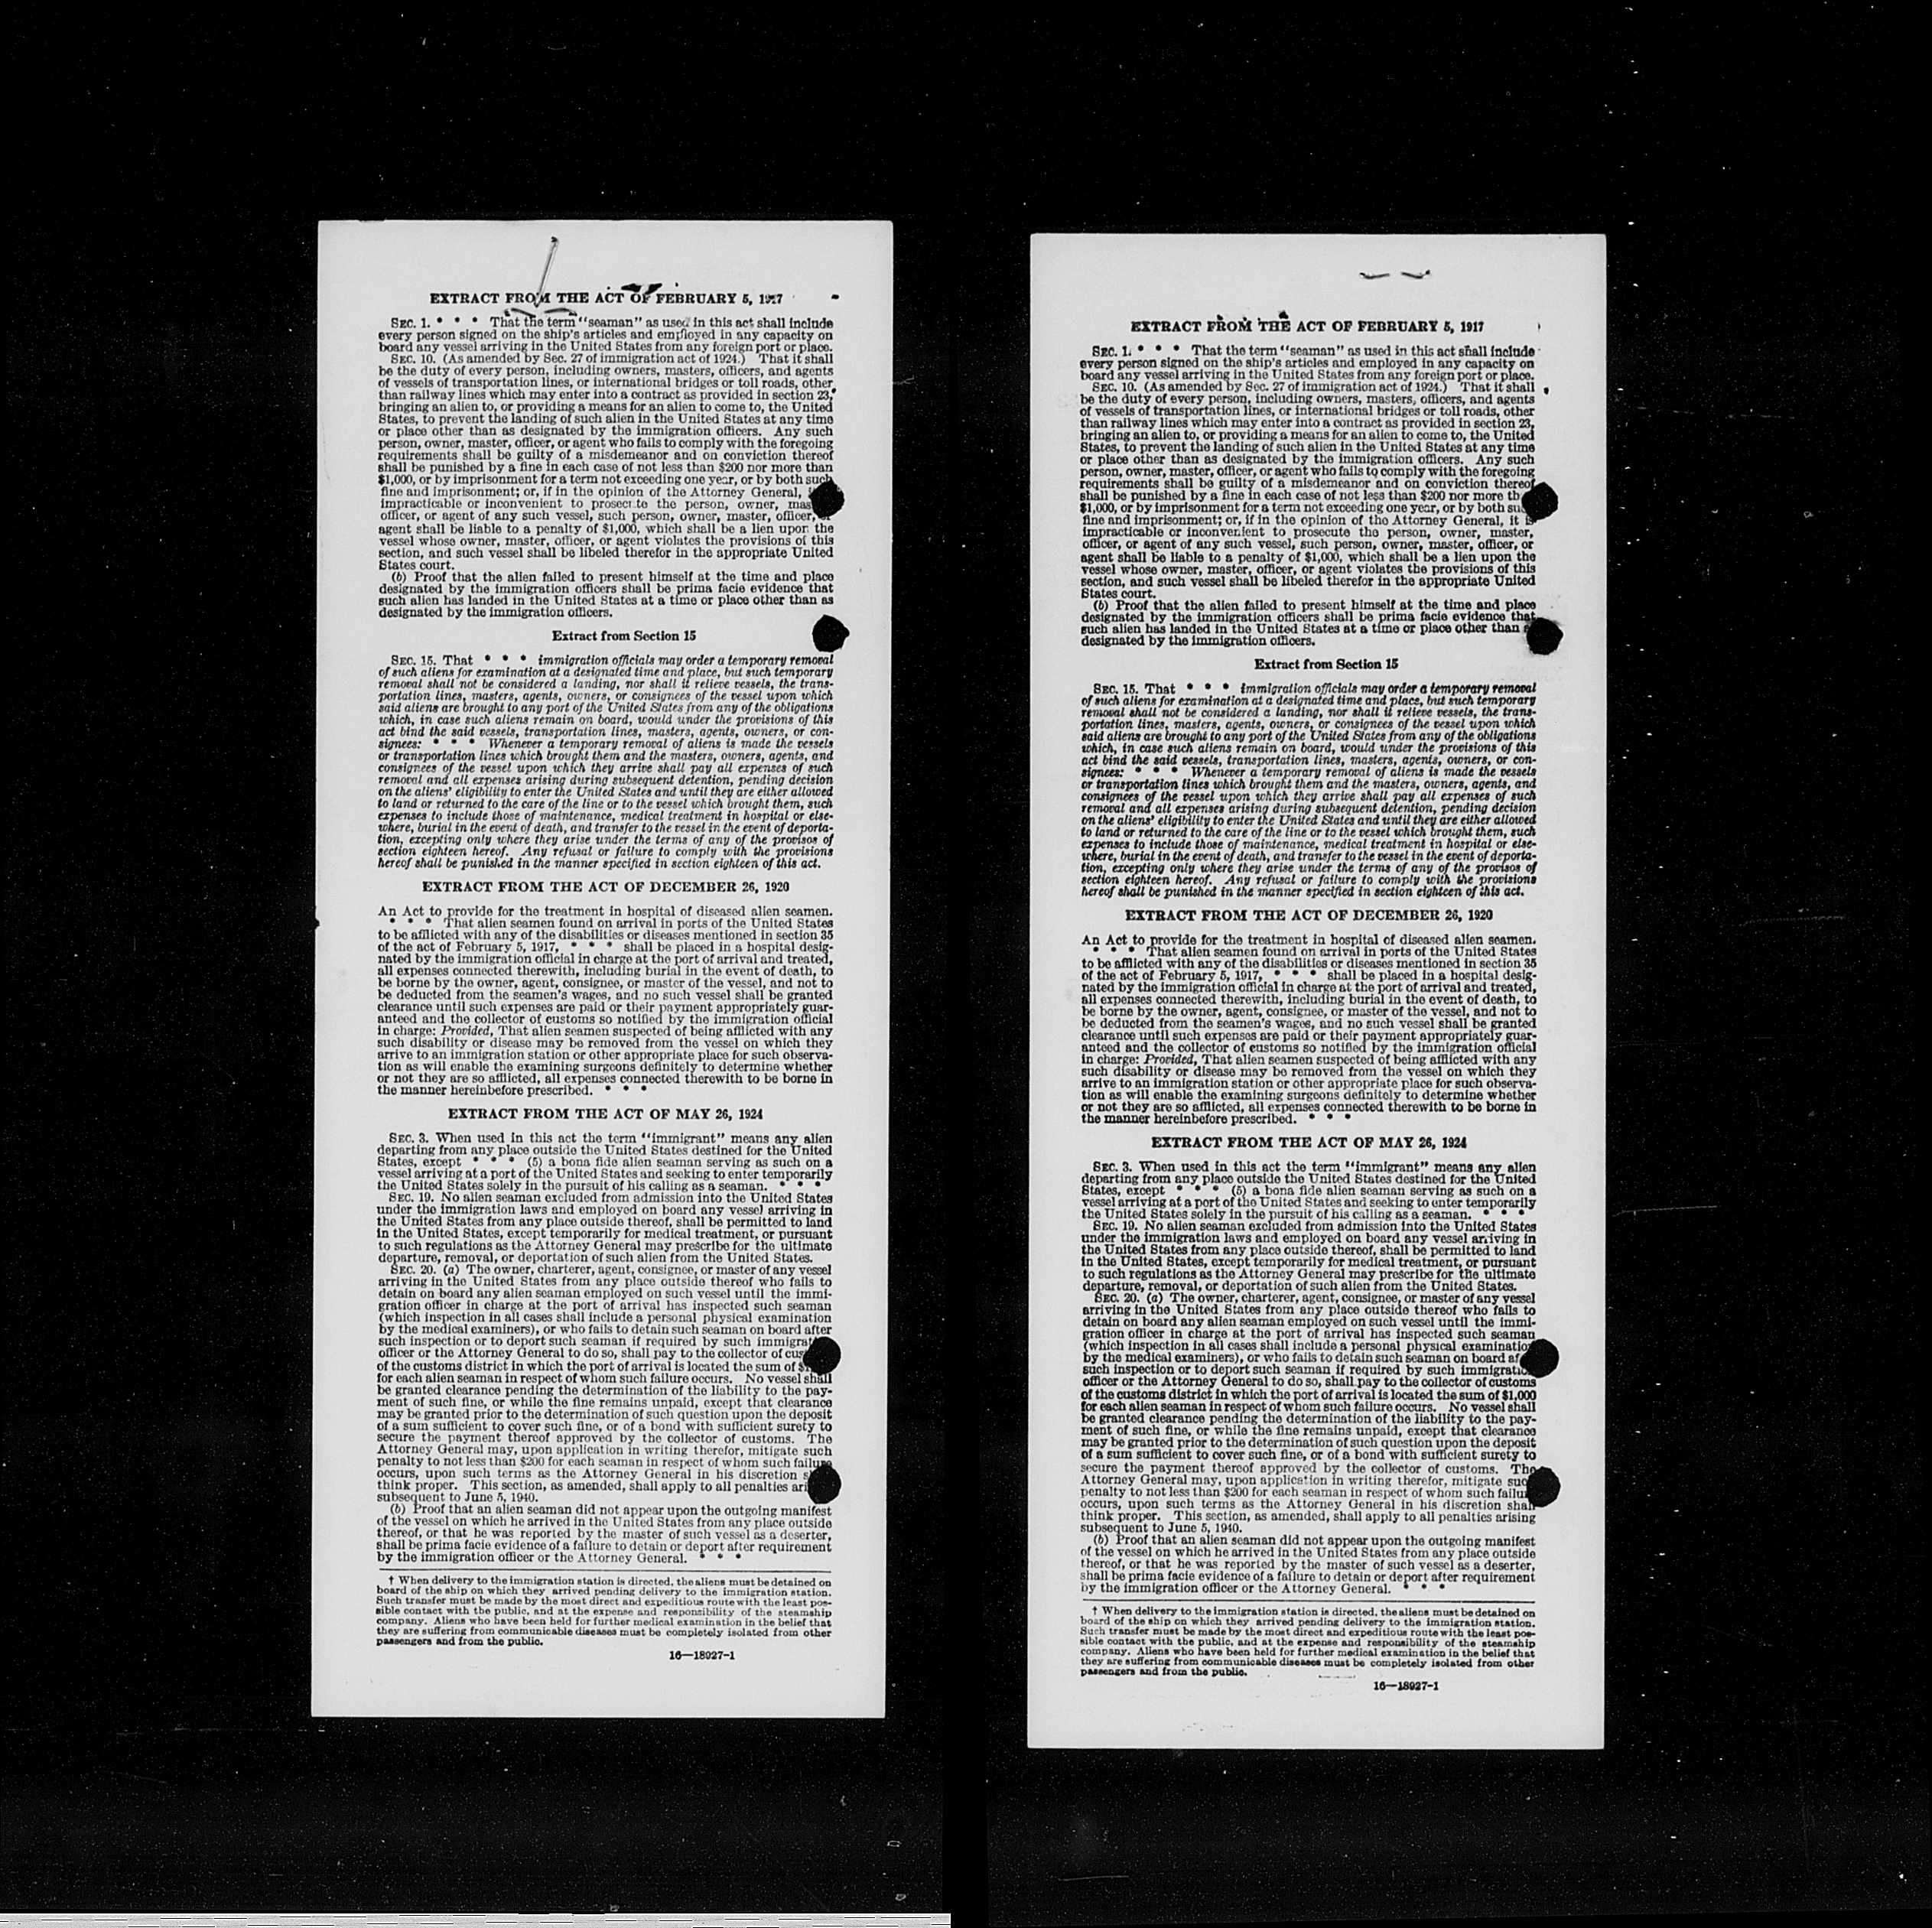 EXTRACT FROM THE ACT OF FEBRUARY 5, 1917
SEC. 1. * * * That the term "seaman" as used in this act shall include
every person signed on the ship's articles and employed in any capacity on
board any vessel arriving in the United States from any foreign port or place.
SEC. 10. (As amended by Sec. 27 of immigration act of 1924.) That it shall
be the duty of every person, including owners, masters, officers, and agents
of vessels of transportation lines, or international bridges or toll roads, other
than railway lines which may enter into a contract as provided in section 23,
bringing an alien to, or providing a means for an alien to come to, the United
States, to prevent the landing of such alien in the United States at any time
or place other than as designated by the immigration officers. Any such
person, owner, master, officer, or agent who fails to comply with the foregoing
requirements shall be guilty of a misdemeanor and on conviction thereof
shall be punished by a fine in each case of not less than $200 nor more than
$1,000, or by imprisonment for a term not exceeding one year, or by both such
fine and imprisonment; or, if in the opinion of the Attorney General,
impracticable or inconvenient to prosecute the person, owner, mas
officer, or agent of any such vessel, such person, owner, master, officer,
agent shall be liable to a penalty of $1,000, which shall be a lien upon the
vessel whose owner, master, officer, or agent violates the provisions of this
section, and such vessel shall be libeled therefor in the appropriate United
States court.
(b) Proof that the alien failed to present himself at the time and place
designated by the immigration officers shall be prima facie evidence that
such alien has landed in the United States at a time or place other than as
designated by the immigration officers.
Extract from Section 15
SEC. 15. That * * * immigration officials may order a temporary removal
of such aliens for examination at a designated time and place, but such temporary
removal shall not be considered a landing, nor shall it relieve vessels, the trans-
portation lines, masters, agents, owners, or consignees of the vessel upon which
said aliens are brought to any port of the United States from any of the obligations
which, in case such aliens remain on board, would under the provisions of this
act bind the said vessels, transportation lines, masters, agents, owners, or con-
signees: * * * Whenever a temporary removal of aliens is made the vessels
or transportation lines which brought them and the masters, owners, agents, and
consignees of the vessel upon which they arrive shall pay all expenses of such
removal and all expenses arising during subsequent detention, pending decision
on the aliens' eligibility to enter the United States and until they are either allowed
to land or returned to the care of the line or to the vessel which brought them, such
expenses to include those of maintenance, medical treatment in hospital or else-
where, burial in the event of death, and transfer to the vessel in the event of deporta-
tion, excepting only where they arise under the terms of any of the provisos of
section eighteen hereof. Any refusal or failure to comply with the provisions
hereof shall be punished in the manner specified in section eighteen of this act.
EXTRACT FROM THE ACT OF DECEMBER 26, 1920
An Act to provide for the treatment in hospital of diseased alien seamen.
* * * That alien seamen found on arrival in ports of the United States
to be afflicted with any of the disabilities or diseases mentioned in section 35
of the act of February 5, 1917, * * * shall be placed in a hospital desig-
nated by the immigration official in charge at the port of arrival and treated,
all expenses connected therewith, including burial in the event of death, to
be borne by the owner, agent, consignee, or master of the vessel, and not to
be deducted from the seamen's wages, and no such vessel shall be granted
clearance until such expenses are paid or their payment appropriately guar-
anteed and the collector of customs so notified by the immigration official
in charge: Provided, That alien seamen suspected of being afflicted with any
such disability or disease may be removed from the vessel on which they
arrive to an immigration station or other appropriate place for such observa-
tion as will enable the examining surgeons definitely to determine whether
or not they are so afflicted, all expenses connected therewith to be borne in
the manner hereinbefore prescribed. * * *
EXTRACT FROM THE ACT OF MAY 26, 1924
SEC. 3. When used in this act the term "immigrant" means any alien
departing from any place outside the United States destined for the United
States, except * * * (5) a bona fide alien seaman serving as such on a
vessel arriving at a port of the United States and seeking to enter temporarily
the United States solely in the pursuit of his calling as a seaman. * * *
SEC. 19. No alien seaman excluded from admission into the United States
under the immigration laws and employed on board any vessel arriving in
the United States from any place outside thereof, shall be permitted to land
in the United States, except temporarily for medical treatment, or pursuant
to such regulations as the Attorney General may prescribe for the ultimate
departure, removal, or deportation of such alien from the United States.
SEC. 20. (a) The owner, charterer, agent, consignee, or master of any vessel
arriving in the United States from any place outside thereof who fails to
detain on board any alien seaman employed on such vessel until the immi-
gration officer in charge at the port of arrival has inspected such seaman
(which inspection in all cases shall include a personal physical examination
by the medical examiners), or who fails to detain such seaman on board after
such inspection or to deport such seaman if required by such immigrat
officer or the Attorney General to do so, shall pay to the collector of cus
of the customs district in which the port of arrival is located the sum of
for each alien seaman in respect of whom such failure occurs. No vessel shall
be granted clearance pending the determination of the liability to the pay-
ment of such fine, or while the fine remains unpaid, except that clearance
may be granted prior to the determination of such question upon the deposit
of a sum sufficient to cover such fine, or of a bond with sufficient surety to
secure the payment thereof approved by the collector of customs. The
Attorney General may, upon application in writing therefor, mitigate such
penalty to not less than $200 for each seaman in respect of whom such failure
occurs, upon such terms as the Attorney General in his discretion
think proper. This section, as amended, shall apply to all penalties ari
subsequent to June 5, 1940.
(b) Proof that an alien seaman did not appear upon the outgoing manifest
of the vessel on which he arrived in the United States from any place outside
thereof, or that he was reported by the master of such vessel as a deserter,
shall be prima facie evidence of a failure to detain or deport after requirement
by the immigration officer or the Attorney General. * * *
† When delivery to the immigration station is directed, the aliens must be detained on
board of the ship on which they arrived pending delivery to the immigration station.
Such transfer must be made by the most direct and expeditious route with the least pos-
sible contact with the public, and at the expense and responsibility of the steamship
company. Aliens who have been held for further medical examination in the belief that
they are suffering from communicable diseases must be completely isolated from other
passengers and from the public.
16—18927-1
EXTRACT FROM THE ACT OF FEBRUARY 5, 1917
SEC. 1. * * * That the term "seaman" as used in this act shall include
every person signed on the ship's articles and employed in any capacity on
board any vessel arriving in the United States from any foreign port or place.
SEC. 10. (As amended by Sec. 27 of immigration act of 1924.) That it shall
be the duty of every person, including owners, masters, officers, and agents
of vessels of transportation lines, or international bridges or toll roads, other
than railway lines which may enter into a contract as provided in section 23,
bringing an alien to, or providing a means for an alien to come to, the United
States, to prevent the landing of such alien in the United States at any time
or place other than as designated by the immigration officers. Any such
person, owner, master, officer, or agent who fails to comply with the foregoing
requirements shall be guilty of a misdemeanor and on conviction thereof
shall be punished by a fine in each case of not less than $200 nor more th
$1,000, or by imprisonment for a term not exceeding one year, or by both su
fine and imprisonment; or, if in the opinion of the Attorney General, it is
impracticable or inconvenient to prosecute the person, owner, master,
officer, or agent of any such vessel, such person, owner, master, officer, or
agent shall be liable to a penalty of $1,000, which shall be a lien upon the
vessel whose owner, master, officer, or agent violates the provisions of this
section, and such vessel shall be libeled therefor in the appropriate United
States court.
(b) Proof that the alien failed to present himself at the time and place
designated by the immigration officers shall be prima facie evidence that
such alien has landed in the United States at a time or place other than
designated by the immigration officers.
Extract from Section 15
SEC. 15. That * * * immigration officials may order a temporary removal
of such aliens for examination at a designated time and place, but such temporary
removal shall not be considered a landing, nor shall it relieve vessels, the trans-
portation lines, masters, agents, owners, or consignees of the vessel upon which
said aliens are brought to any port of the United States from any of the obligations
which, in case such aliens remain on board, would under the provisions of this
act bind the said vessels, transportation lines, masters, agents, owners, or con-
signees: * * * Whenever a temporary removal of aliens is made the vessels
or transportation lines which brought them and the masters, owners, agents, and
consignees of the vessel upon which they arrive shall pay all expenses of such
removal and all expenses arising during subsequent detention, pending decision
on the aliens' eligibility to enter the United States and until they are either allowed
to land or returned to the care of the line or to the vessel which brought them, such
expenses to include those of maintenance, medical treatment in hospital or else-
where, burial in the event of death, and transfer to the vessel in the event of deporta-
tion, excepting only where they arise under the terms of any of the provisos of
section eighteen hereof. Any refusal or failure to comply with the provisions
hereof shall be punished in the manner specified in section eighteen of this act.
EXTRACT FROM THE ACT OF DECEMBER 26, 1920
An Act to provide for the treatment in hospital of diseased alien seamen.
* * * That alien seamen found on arrival in ports of the United States
to be afflicted with any of the disabilities or diseases mentioned in section 35
of the act of February 5, 1917, * * * shall be placed in a hospital desig-
nated by the immigration official in charge at the port of arrival and treated,
all expenses connected therewith, including burial in the event of death, to
be borne by the owner, agent, consignee, or master of the vessel, and not to
be deducted from the seamen's wages, and no such vessel shall be granted
clearance until such expenses are paid or their payment appropriately guar-
anteed and the collector of customs so notified by the immigration official
in charge: Provided, That alien seamen suspected of being afflicted with any
such disability or disease may be removed from the vessel on which they
arrive to an immigration station or other appropriate place for such observa-
tion as will enable the examining surgeons definitely to determine whether
or not they are so afflicted, all expenses connected therewith to be borne in
the manner hereinbefore prescribed. * * *
EXTRACT FROM THE ACT OF MAY 26, 1924
SEC. 3. When used in this act the term "immigrant" means any alien
departing from any place outside the United States destined for the United
States, except * * * (5) a bona fide alien seaman serving as such on a
vessel arriving at a port of the United States and seeking to enter temporarily
the United States solely in the pursuit of his calling as a seaman. * * *
SEC. 19. No alien seaman excluded from admission into the United States
under the immigration laws and employed on board any vessel arriving in
the United States from any place outside thereof, shall be permitted to land
in the United States, except temporarily for medical treatment, or pursuant
to such regulations as the Attorney General may prescribe for the ultimate
departure, removal, or deportation of such alien from the United States.
SEC. 20. (a) The owner, charterer, agent, consignee, or master of any vessel
arriving in the United States from any place outside thereof who fails to
detain on board any alien seaman employed on such vessel until the immi-
gration officer in charge at the port of arrival has inspected such seaman
(which inspection in all cases shall include a personal physical examinatio
by the medical examiners), or who fails to detain such seaman on board af
such inspection or to deport such seaman if required by such immigratio
officer or the Attorney General to do so, shall pay to the collector of customs
of the customs district in which the port of arrival is located the sum of $1,000
for each alien seaman in respect of whom such failure occurs. No vessel shall
be granted clearance pending the determination of the liability to the pay-
ment of such fine, or while the fine remains unpaid, except that clearance
may be granted prior to the determination of such question upon the deposit
of a sum sufficient to cover such fine, or of a bond with sufficient surety to
secure the payment thereof approved by the collector of customs. The
Attorney General may, upon application in writing therefor, mitigate suc
penalty to not less than $200 for each seaman in respect of whom such failu
occurs, upon such terms as the Attorney General in his discretion shall
think proper. This section, as amended, shall apply to all penalties arising
subsequent to June 5, 1940.
(b) Proof that an alien seaman did not appear upon the outgoing manifest
of the vessel on which he arrived in the United States from any place outside
thereof, or that he was reported by the master of such vessel as a deserter,
shall be prima facie evidence of a failure to detain or deport after requirement
by the immigration officer or the Attorney General. * * *
† When delivery to the immigration station is directed, the aliens must be detained on
board of the ship on which they arrived pending delivery to the immigration station.
Such transfer must be made by the most direct and expeditious route with the least pos-
sible contact with the public, and at the expense and responsibility of the steamship
company. Aliens who have been held for further medical examination in the belief that
they are suffering from communicable diseases must be completely isolated from other
passengers and from the public.
16—18927-1